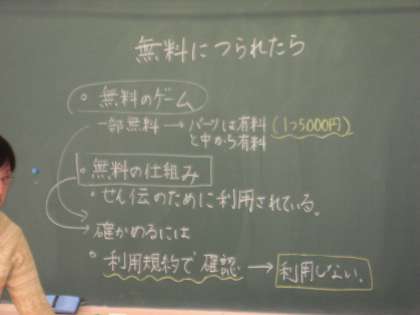 無料につられたら
。無料のゲーム
一部無料 → パーツは有料 (1つ5000円)
と中から有料
。無料の仕組み
・せん伝のために利用されている。
確かめるには
。利用規約で確認 → 利用しない。